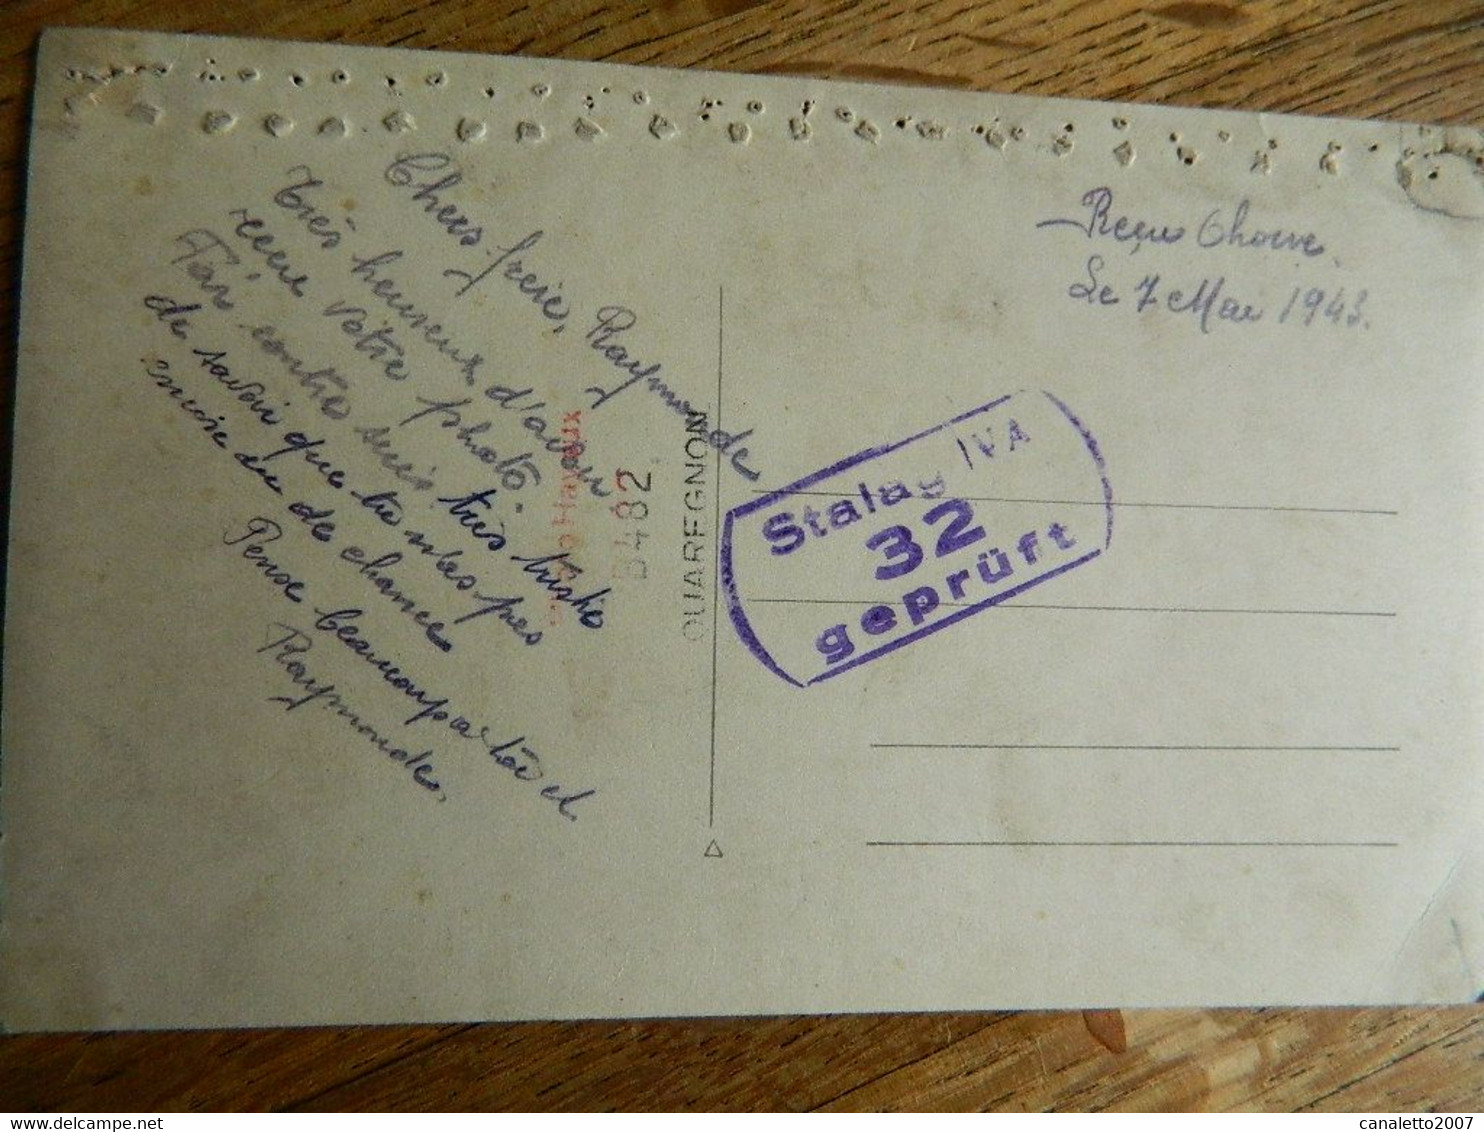 Chers frère, Raymonde
Très heureux d'avoir
recue votre photo.
Par contre suis très triste
de savoir que tu n'es pas
encore eu de chance
Pense beaucoup a toi et
Raymonde.
B482
QUAREGNON
Recus
Le 7 Mai 1943.
Stalag IVA
32
geprüft
canaletto2007